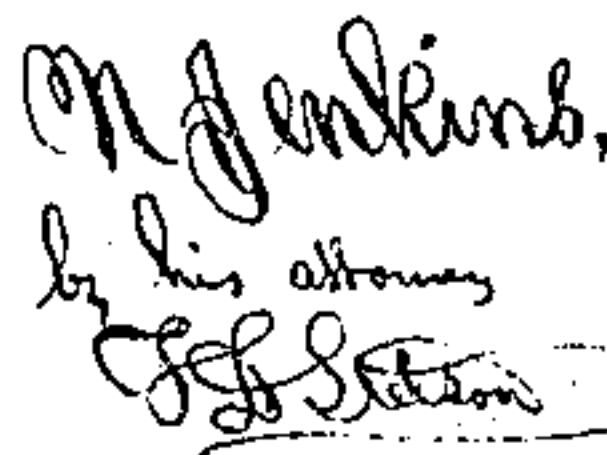 N Jenkins.
by his attorney
Stetson